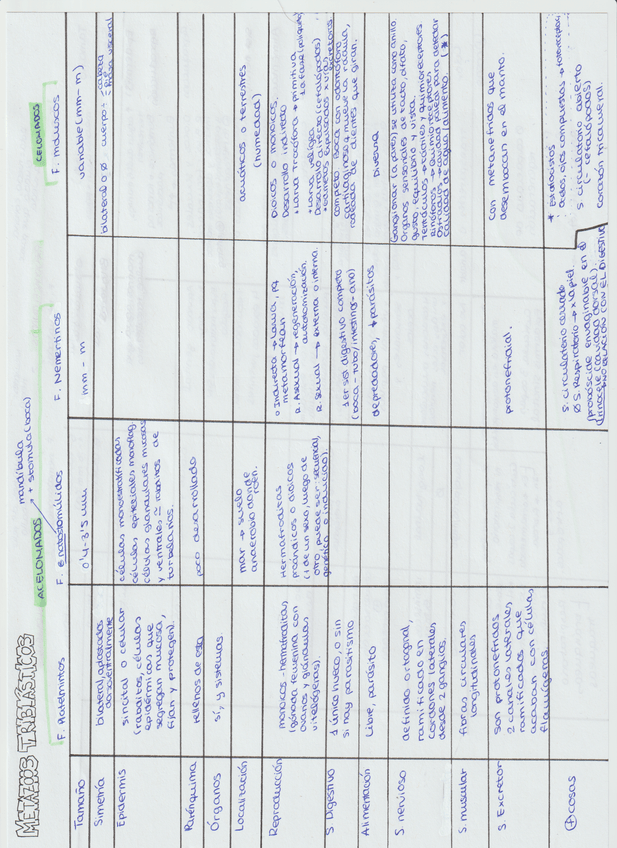 METAZOOS TRIBLÁSTICOS
ACELOMADOS
mandíbula
+ stomula (boca)
CELOMADOS
F. Platelmintos
F. gnatostomúlidos
F. Nemertinos
F. Moluscos
Tamaño
0'4-3'5 mm
mm - m
variable (mm - m)
Simetría
bilateral, aplastados
dorsoventralmente
bilateral o Ø
cuerpo:
cabeza
pie
masa visceral
Epidermis
sincitial o celular
(rabditos, células
epidérmicas que
segregan mucosa,
fijan y protegen).
células monoestratificadas
células epiteliales monoflag
células glandulares mucosas
y ventrales
de
turbelarios.
Parénquima
rellenos de esta
poco desarrollado
Órganos
sí, y sistemas
Localización
mar → suelo
anaerobio donde
roen.
acuáticos o terrestres
(humedad)
Reproducción
monoicos - hermafroditas
(gónada femenina con
ovarios y glándulas
vitelógenas).
Hermafroditas
proándricos o dioicos
(1 de un sexo, luego de
otro, puede ser: secuencial,
genética o inducción)
o Indirecta → larva, pq
metamorfean
R. Asexual → regeneración,
autotomización.
R. Sexual → externa o interna.
Dioicos o monoicos.
Desarrollo indirecto
• Larva Trocófora → primitiva
• Larva velígera
Desarrollo directo (cefalópodos)
S. Digestivo
1 única hueco, o sin
si hay parasitismo
1er sist. digestivo completo
(boca - tubo/intestino - ano)
completo. Boca con odontóforo
cartilaginoso q mueve la rádula,
rodeada de dientes que giran.
Alimentación
Libre, parásito
depredadores, + parásitos
Diversa
S. nervioso
definido ortogonal,
ramificado en
cordones laterales
desde 2 ganglios.
Ganglionar (a pares) se situta como anillo
Órganos sensoriales de tacto, olfato,
gusto, equilibrio y vista.
calidad de agua/alimento. (*)
S. muscular
fibras circulares
longitudinales
S. Excretor
son protonefridios
2 canales laterales
ramificados que
acaban con células
flamígeras.
protonefridial.
con metanefridios que
desembocan en el manto.
⊕ cosas
S. circulatorio cerrado
Ø S. Respiratorio → x la piel.
(probóscide envaginable en el
rincocele (cavidad dorsal).
SIN RELACIÓN CON EL DIGESTIVO
* Estatocistos
S circulatorio abierto
(- cefalópodos)
corazón tricameral.